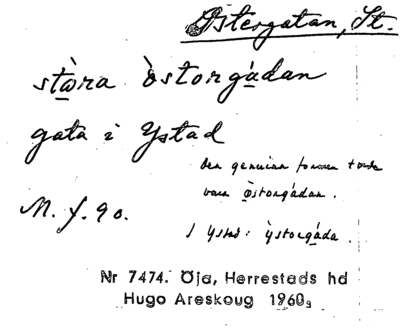 Östergatan, St.
stòra òstorgádan
gata i Ystad
den genuina formen torde
vara òstorgádan.
M. f. 90.
I Ystad: ỳstorgáda.
Nr 7474. Öja, Herrestads hd
Hugo Areskoug 1960